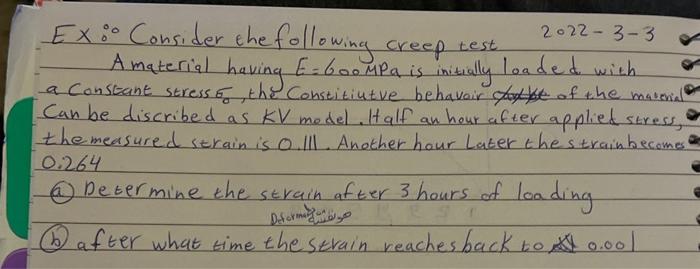 Ex: Consider the following creep test 2022-3-3
A material having E=600MPa is initially loaded with
a constant stress σ₀, the Constitiutve behavoir of the material
Can be discribed as KV model. Half an hour after applied stress,
the measured strain is 0.111. Another hour Later the strain becomes
0.264
(a) Determine the strain after 3 hours of loading
Deformation
(b) after what time the strain reaches back to 0.001